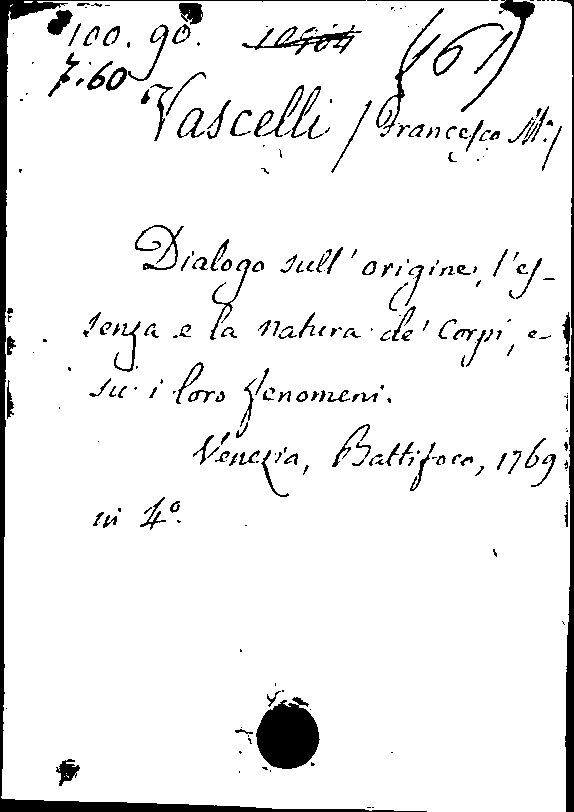 100. 90. 10404 (161)
7.60
Vascelli /Francesco Mª/
Dialogo sull' origine, l'es-
senza e la natura de' Corpi, e
su i loro fenomeni.
Venezia, Battifoco, 1769
in 4º.